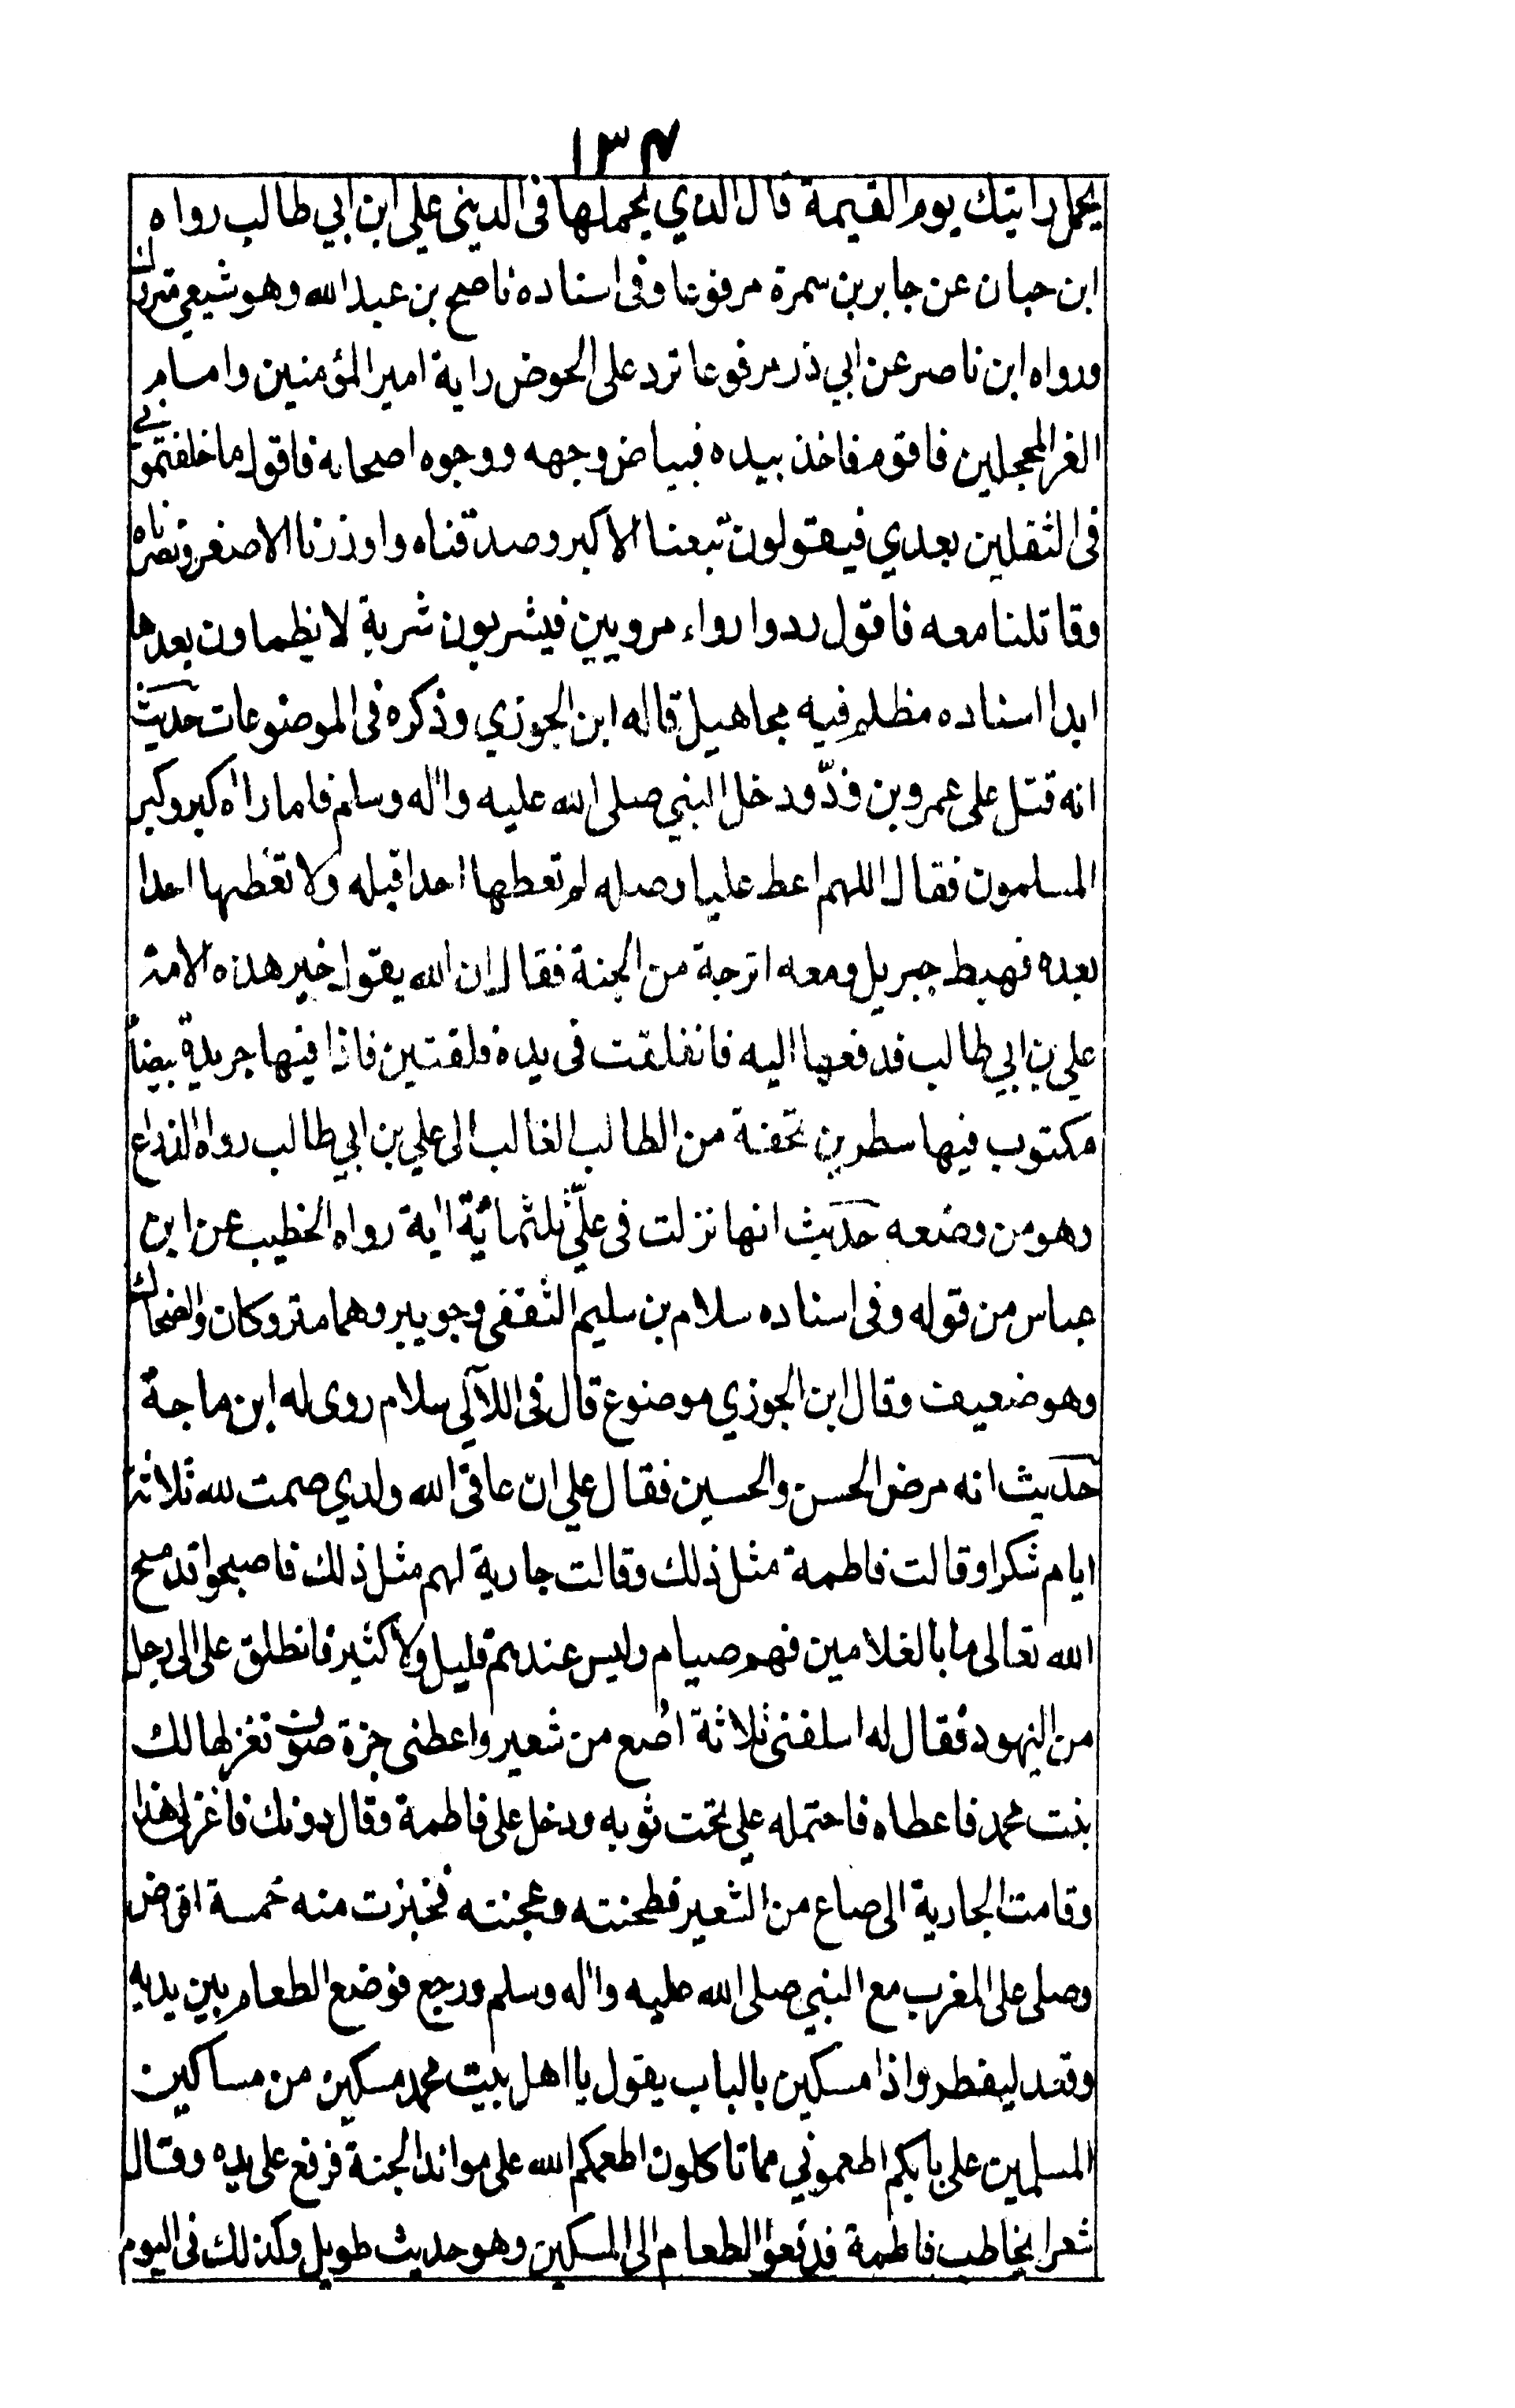 ١٣٤
يحمل رايتك يوم القيمة قال الذي يحملها فى الدينى على ابن ابي طالب رواه
ابن حبان عن جابر بن سمرة مرفوعا وفى اسناده ناصح بن عبد الله وهو شيعي متروك
ورواه ابن ناصر عن ابي ذر مرفوعا ترد على الحوض راية امير المؤمنين وامام
الغر المحجلين فاقوم فاخذ بيده فبياض وجهه ووجوه اصحابه فاقول ما خلفتموني
فى الثقلين بعدي فيقولون تبعنا الاكبر وصدقناه واوزرنا الاصغر ونصرناه
وقاتلنا معه فاقول ردوا رواء مرويين فيشربون شربة لا يظماون بعدها
ابدا اسناده مظلم فيه مجاهيل قاله ابن الجوزي وذكره فى الموضوعات حديث
انه قتل على عمرو بن ودّ ودخل النبي صلى الله عليه واله وسلم فلما راه كبر وكبر
المسلمون فقال اللهم اعط عليا وصله لم تعطها احدا قبله ولا تعطها احدا
بعده فهبط جبريل ومعه اترجة من الجنة فقال ان الله يقول خير هذه الامة
علي بن ابي طالب فدفعها اليه فانفلقت فى يده فلقتين فاذا فيها جريدة بيضا
مكتوب فيها سطرين تحفة من الطالب الغالب الى علي بن ابي طالب رواه الذراع
وهو من وضعه حديث انها نزلت فى علىّ ثلثمائة اية رواه الخطيب عن ابن
عباس من قوله وفى اسناده سلام بن سليم الثقفى وجويبر وهما متروكان والضحاك
وهو ضعيف وقال ابن الجوزي موضوع قال فى اللآلي سلام روى له ابن ماجة
حديث انه مرض الحسن والحسين فقال علي ان عافى الله ولدي صمت لله ثلاثة
ايام شكرا وقالت فاطمة مثل ذلك وقالت جارية لهم مثل ذلك فاصبحوا قد مسح
الله تعالى ما بالغلامين فهم صيام وليس عندهم قليل ولا كثير فانطلق على الى رجل
من اليهود فقال له اسلفنى ثلاثة اصع من شعير واعطنى جزة صوف تغزلها لك
بنت محمد فاعطاه فاحتمله علي تحت ثوبه ودخل على فاطمة وقال دونك فاغزلى هذا
وقامت الجارية الى صاع من الشعير فطحنته وعجنته فخبزت منه خمسة اقراص
وصلى على المغرب مع النبي صلى الله عليه واله وسلم ورجع فوضع الطعام بين يديه
وقعد ليفطر واذا مسكين بالباب يقول يا اهل بيت محمد مسكين من مساكين
المسلمين على بابكم اطعموني مما تاكلون اطعمكم الله على موائد الجنة فرفع على يده وقال
شعرا يخاطب فاطمة فدفعوا الطعام الى المسكين وهو حديث طويل وكذلك فى اليوم